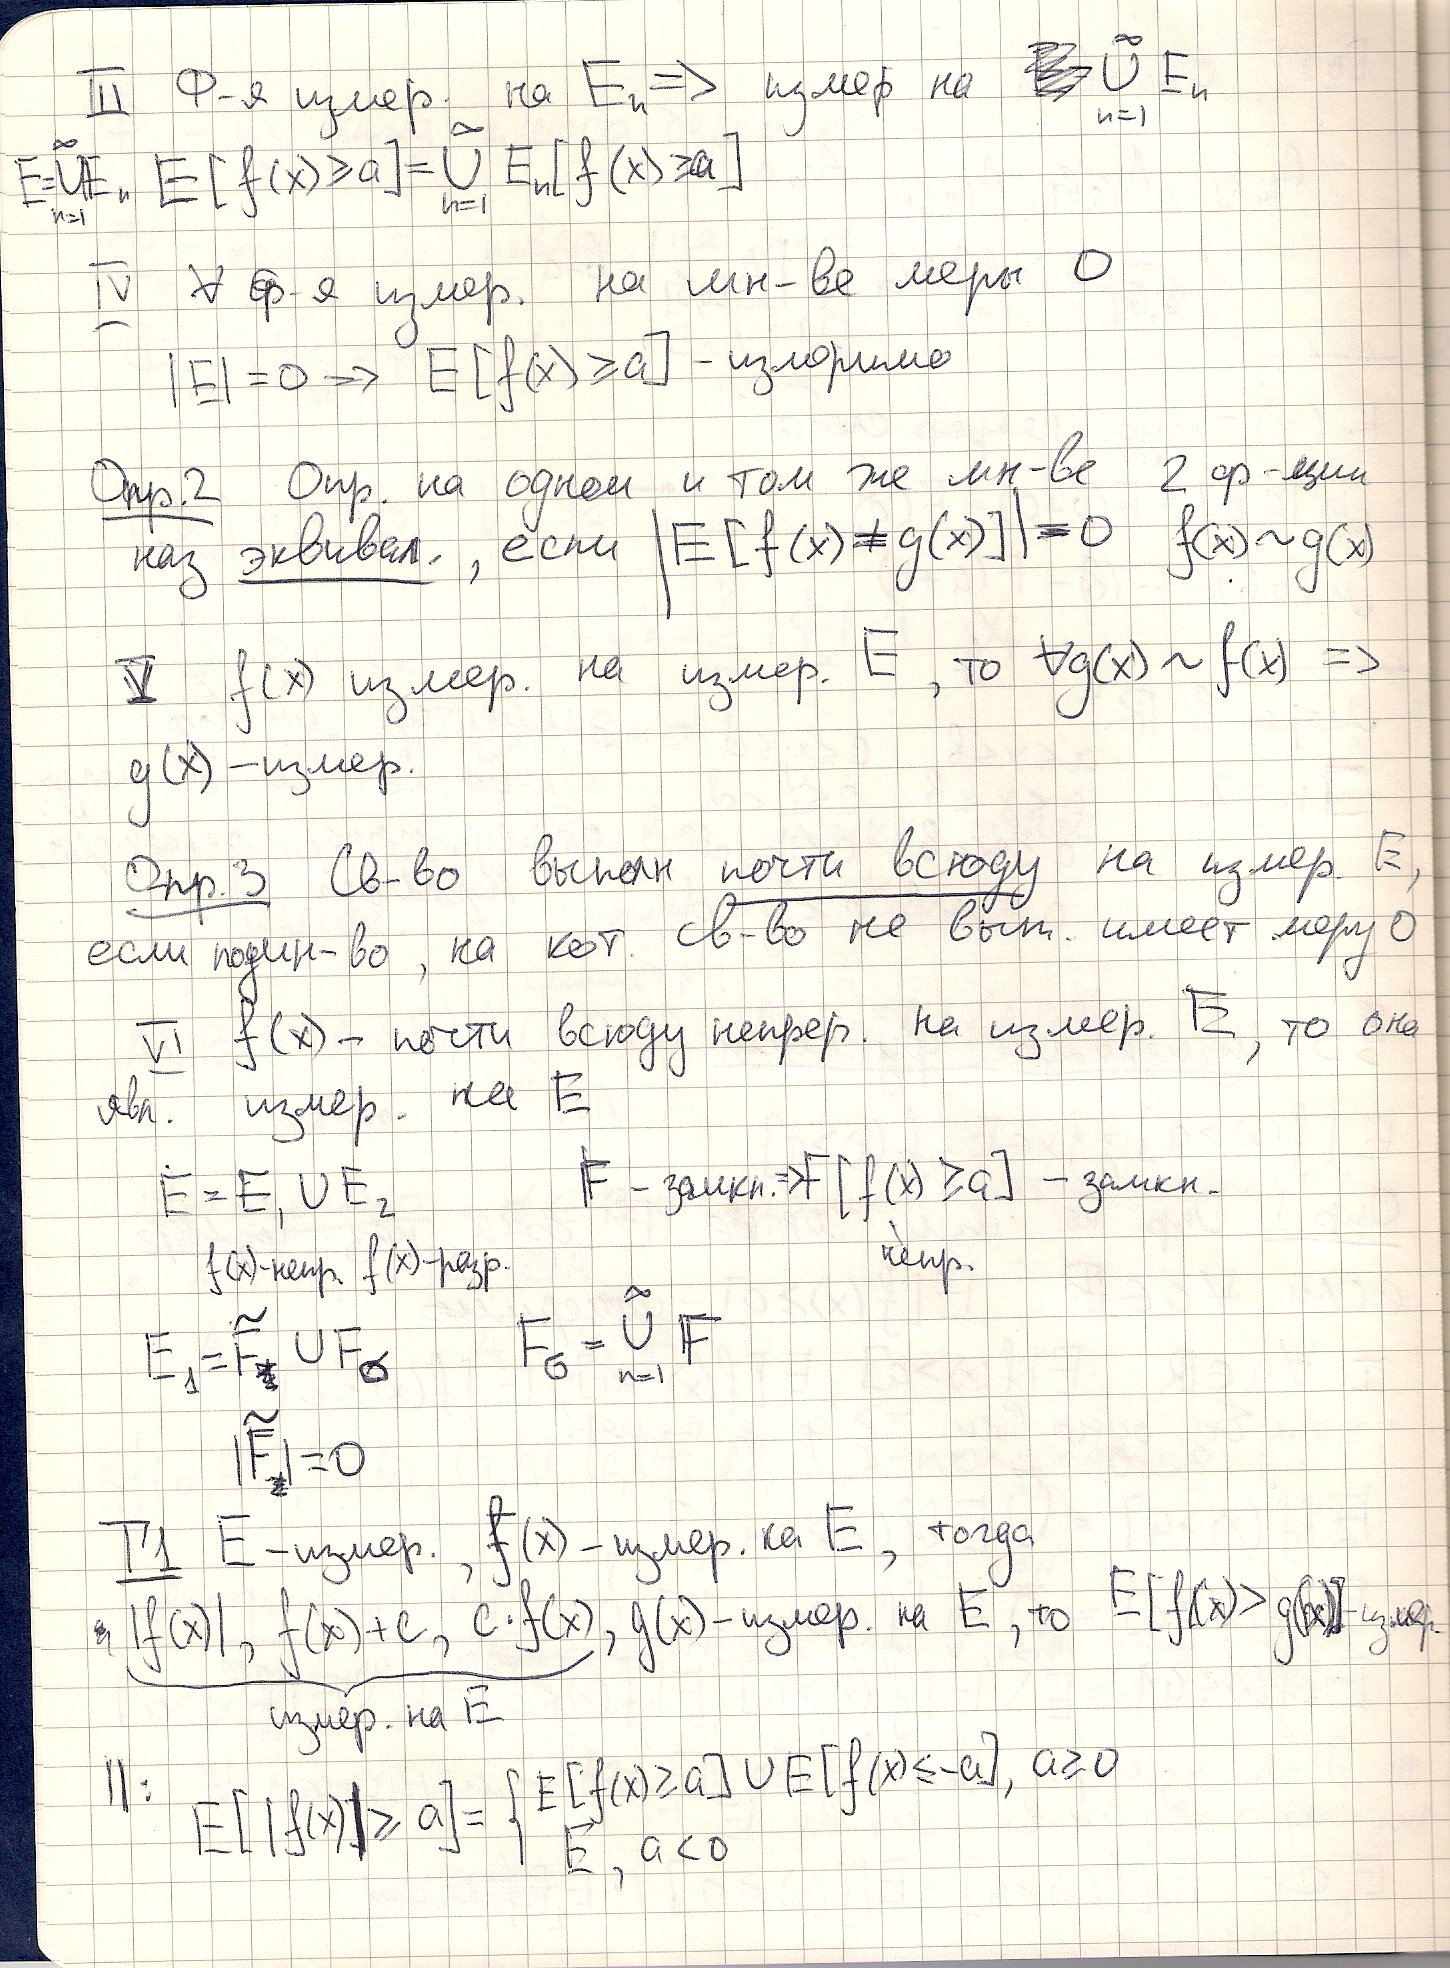 III Ф-я измер. на Eₙ => измер на ∞⋃n=1 Eₙ
E=∞⋃n=1 Eₙ E[f(x)≥a]=∞⋃n=1 Eₙ[f(x)≥a]
IV ∀ ф-я измер. на мн-ве меры 0
|E|=0 => E[f(x)≥a] – измеримо
Опр.2 Опр. на одном и том же мн-ве 2 ф-ции
наз эквивал., если |E[f(x)≠g(x)]|=0 f(x)~g(x)
V f(x) измер. на измер. E, то ∀g(x)~f(x) =>
g(x) – измер.
Опр.3 Св-во выполн почти всюду на измер. E,
если подмн-во, на кот. св-во не вып. имеет меру 0
VI f(x) – почти всюду непрер. на измер. E, то она
явл. измер. на E
E = E₁ ∪ E₂ F – замкн.=>F[f(x)≥a] – замкн.
f(x)-непр. f(x)-разр. непр.
E₁ = F̃ ∪ Fσ Fσ = ∞⋃n=1 F
|F̃|=0
T1 E – измер., f(x) – измер. на E, тогда
|f(x)|, f(x)+c, c·f(x), g(x) – измер. на E, то E[f(x)>g(x)]-измер.
измер. на E
||: E[|f(x)|≥a]={E[f(x)≥a]∪E[f(x)≤-a], a≥0
E, a<0